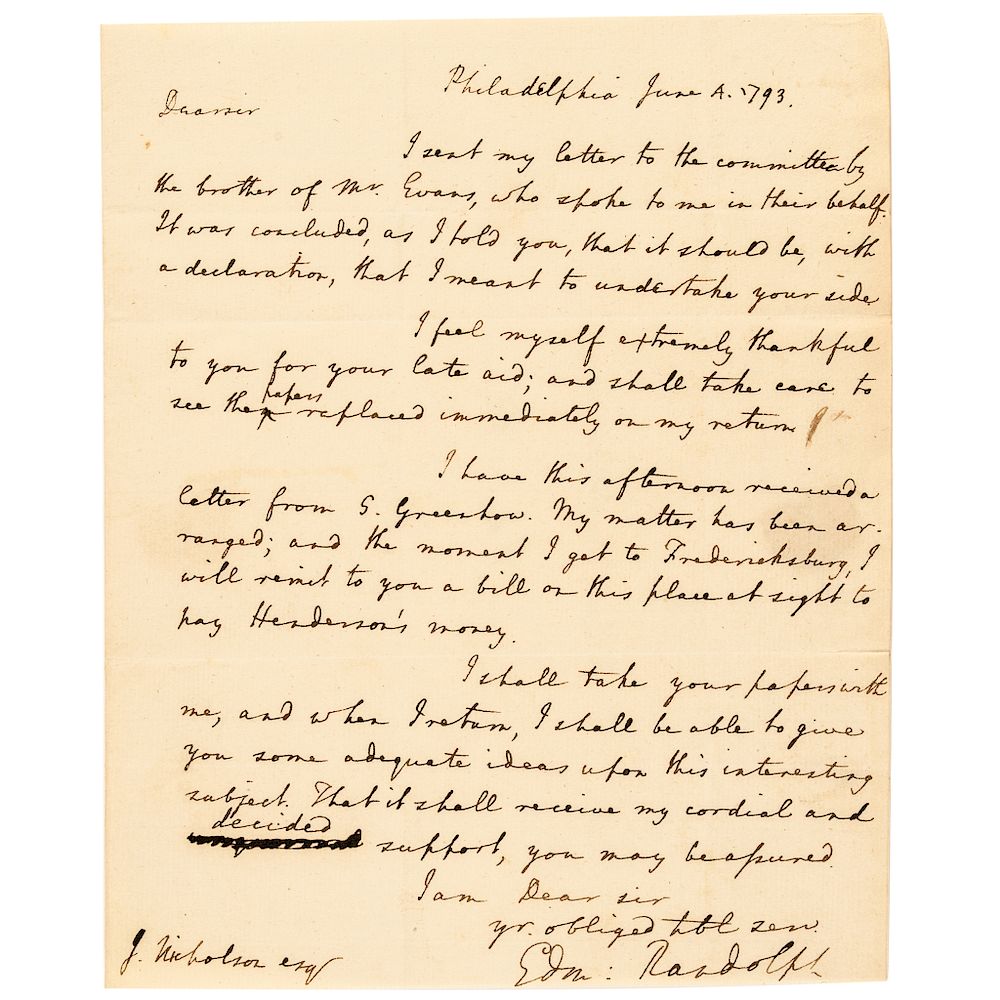 Philadelphia June 4. 1793.
Dear sir
I sent my letter to the committee by
the brother of Mr. Evans, who spoke to me in their behalf.
It was concluded, as I told you, that it should be, with
a declaration, that I meant to undertake your side.
I feel myself extremely thankful
to you for your late aid; and shall take care to
papers
see the replaced immediately on my return
I have this afternoon received a
letter from S. Greenhow. My matter has been ar-
ranged; and the moment I get to Fredericksburg, I
will remit to you a bill on this place at sight to
pay Henderson's money.
I shall take your papers with
me, and when I return, I shall be able to give
you some adequate ideas upon this interesting
subject. That it shall receive my cordial and
decided
support, you may be assured.
I am Dear sir
yr. obliged hbl serv.
Edm: Randolph
J. Nicholson esqr